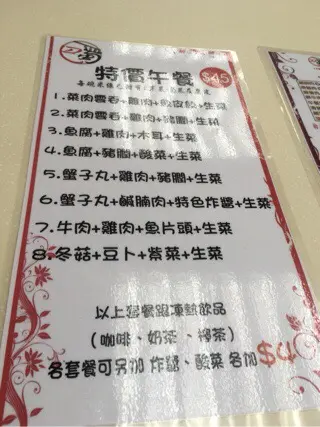 特價午餐 $45
1.菜肉雲吞+雞肉+魚皮餃+生菜
2.菜肉雲吞+雞肉+豬膶+生菜
3.魚腐+雞肉+木耳+生菜
4.魚腐+豬膶+酸菜+生菜
5.蟹子丸+雞肉+豬膶+生菜
6.蟹子丸+鹹腩肉+特色炸醬+生菜
7.牛肉+雞肉+魚片頭+生菜
8.冬菇+豆卜+紫菜+生菜
以上套餐跟凍熱飲品
(咖啡、奶茶、檸茶)
各套餐可另加 炸醬、酸菜 各加 $4